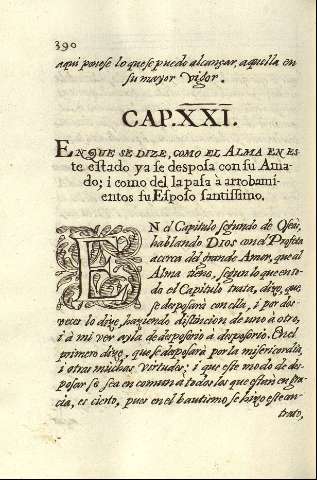 390
aqui ponese lo quese puedo alcançar, aquella en
su mayor vigor.
CAP.XXI.
EN QUE SE DIZE, COMO EL ALMA EN ES
te estado ya se desposa con su Ama-
do; i como del la pasa à arrobami-
entos su Esposo santissimo.
EN el Capitulo segundo de Oseas,
hablando DIOS con el Profeta
acerca del grande Amor, que al
Alma tiene, segun lo que en to-
do el Capitulo trata, dize, que
se desposarà con ella, i por dos
veces lo dize, haziendo distincion de uno à otro,
i à mi ver ay la de desposorio à desposorio. En el
primero dize, que se desposarà por la misericordia,
i otras muchas virtudes; i que este modo de des-
posar se sea en comun à todos los que estàn en gra-
cia, es cierto, pues en el bautismo se hizo este con-
trato,